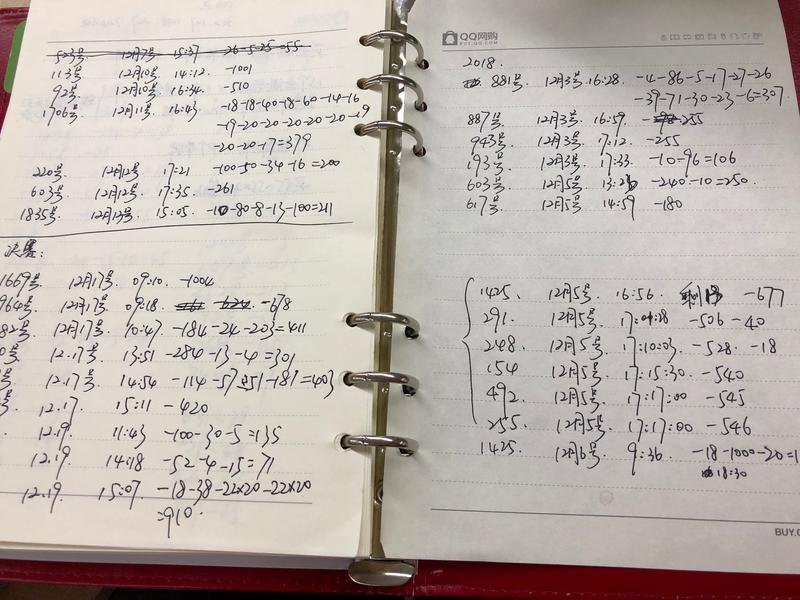 523号 12月7号 15:37 26-5-25-55
113号 12月10号 14:12. -1001
92号 12月10号 16:34. -510
1706号 12月11号 16:43 -18-18-40-18-60-14-16
-19-20-20-20-20-20-19
-20-20-17=379
220号 12月12号 17:21 -100-50-34-16=200
603号 12月12号 17:35 -261
1835号. 12月13号 15:05. -10-80-8-13-100=211
决墨:
1669号 12月17号 09:10. -1004
964号 12月17号. 09:18. -678
82号 12月17号 10:47 -184-24-203=411
0号 12.17号 13:51 -284-13-4=301
号 12.17号 14:54 -114-57-51-181=403
号 12.17 15:11 -420
12.19 11:43 -100-30-5=135
12.19 14:18 -52-4-15=71
12.19 15:07. -18-38-22×20-22×20
=910.
QQ网购
BUY.QQ.COM
2018.
881号 12月3号. 16:28. -4-86-5-17-27-26
-39-71-30-23-6=307
887号 12月3号. 16:59. -255
943号 12月3号. 17:12. -255
193号 12月3号 17:33. -10-96=106
603号 12月5号 13:23 -240-10=250.
617号. 12月5号 14:59 -180
1425. 12月5号. 16:56. -677
291. 12月5号. 17:09:28 -506-40
248. 12月5号. 17:10:03 -528. -18
154 12月5号. 17:15:30 -540
492. 12月5号 17:17:00 -545
255. 12月5号 17:17:00 -546
1425 12月6号 9:36. -18-1000-20=1
18:30
BUY.